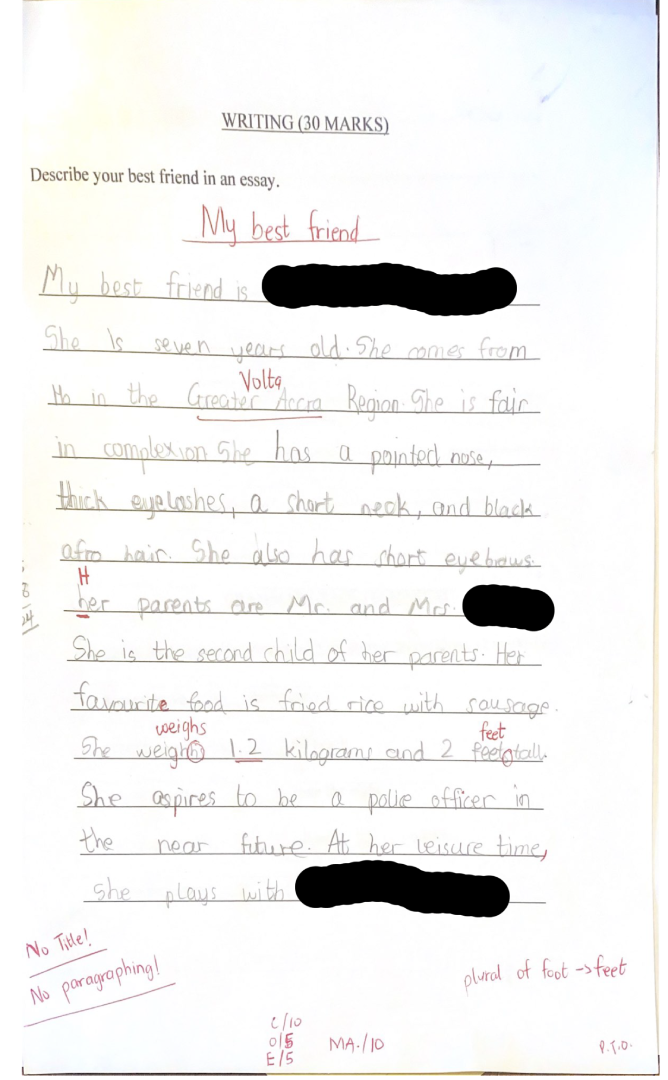 WRITING (30 MARKS)
Describe your best friend in an essay.
My best friend
My best friend is
She is seven years old. She comes from
Volta
Ho in the Greater Accra Region. She is fair
in complexion She has a pointed nose,
thick eyelashes, a short neck, and black
afro hair. She also has short eyebrows.
H
her parents are Mr. and Mrs.
She is the second child of her parents. Her
favourite food is fried rice with sausage.
weighs feet
She weighs 1.2 kilograms and 2 tall.
She aspires to be a police officer in
the near future. At her leisure time,
she plays with
No Title!
No paragraphing!
plural of foot -> feet
C/10
O/5
E/5
MA./10
P.T.O.